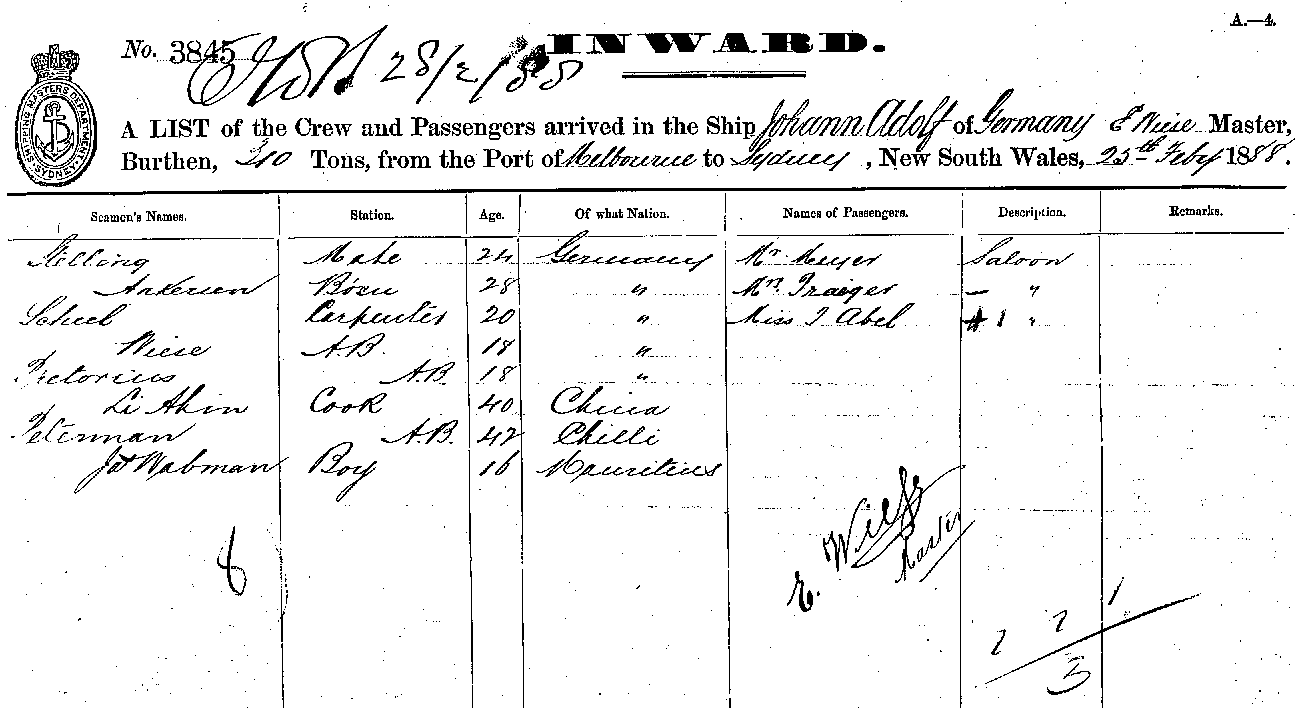 A.—4.
No. 3845
28/2/88
INWARD.
SHIPPING MASTERS DEPARTMENT SYDNEY
A LIST of the Crew and Passengers arrived in the Ship Johann Adolf of Germany E Wiese Master,
Burthen, 310 Tons, from the Port of Melbourne to Sydney, New South Wales, 25th Feby 1888.
Seamen's Names. Station. Age. Of what Nation. Names of Passengers. Description. Remarks.
Stelling Mate 24 Germany Mr Meyer Saloon
Ankersen Bosn 28 " Mrs Traeger — "
Scheel Carpenter 20 " Miss J Abel 1 "
Wiese A.B. 18 "
Pretorius A.B. 18 "
Li Ahin Cook 40 China
Peterman A.B. 42 Chilli
Wabman Boy 16 Mauritius
E. Wiese
Master
8
1
3